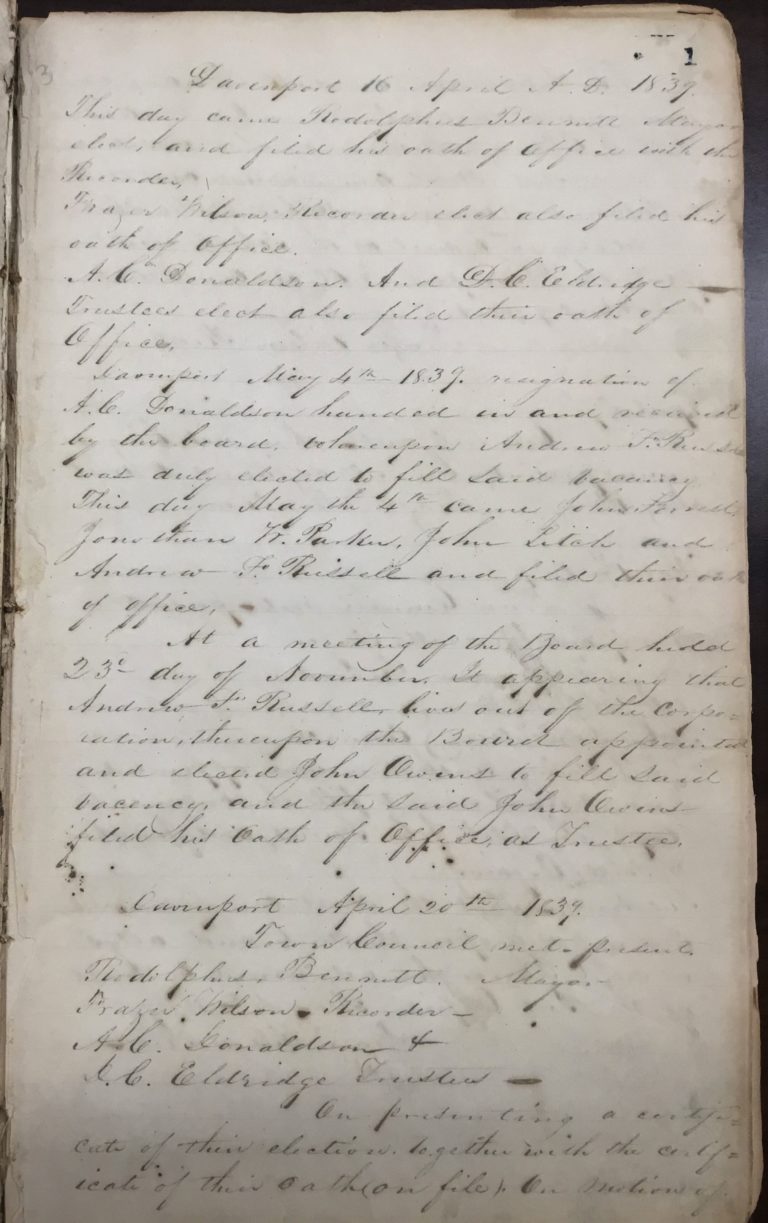 3
1
Davenport 16 April A. D. 1839.
This day came Rodolphus Bennett Mayor
elect, and filed his oath of office with the
Recorder,
Frazer Wilson, Recorder elect also filed his
oath of Office.
A. C. Donaldson. And D. C. Eldridge —
Trustees elect also filed their oath of
Office.
Davenport May 4th 1839. resignation of
A. C. Donaldson handed in and received
by the board. whereupon Andrew F. Russell
was duly elected to fill said vacancy
This day May the 4th came John Forrest,
Jonathan W. Parker, John Litch and
Andrew F. Russell and filed their oath
of office,
At a meeting of the Board held
23d day of November. It appearing that
Andrew F. Russell, lives out of the Corpo-
ration, thereupon the Board appointed
and elected John Owens to fill said
vacency, and the said John Owens
filed his Oath of Office, as Trustee.
Davenport April 20th 1839.
Town Council met - present.
Rodolphus Bennett. Mayor
Frazer Wilson - Recorder -
A. C. Donaldson &
D. C. Eldridge Trustees —
On presenting a certifi=
cate of their election. together with the certif=
icate of their Oath (on file). On motion of